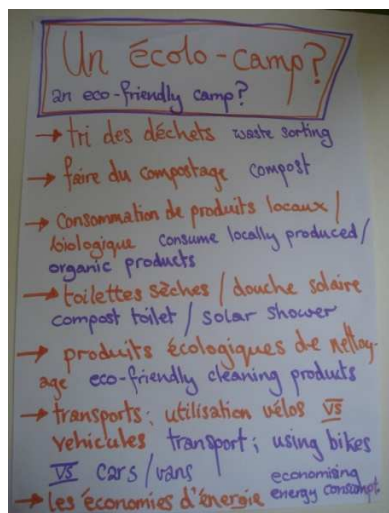 Un écolo-camp?
an eco-friendly camp?
→ tri des déchets waste sorting
→ faire du compostage compost
→ consommation de produits locaux /
biologique consume locally produced /
organic products
→ toilettes sèches / douche solaire
compost toilet / solar shower
→ produits écologiques de nettoy-
age eco-friendly cleaning products
→ transports; utilisation vélos VS
vehicules transport; using bikes
VS cars / vans economising
→ les économies d'énergie energy consumpt.